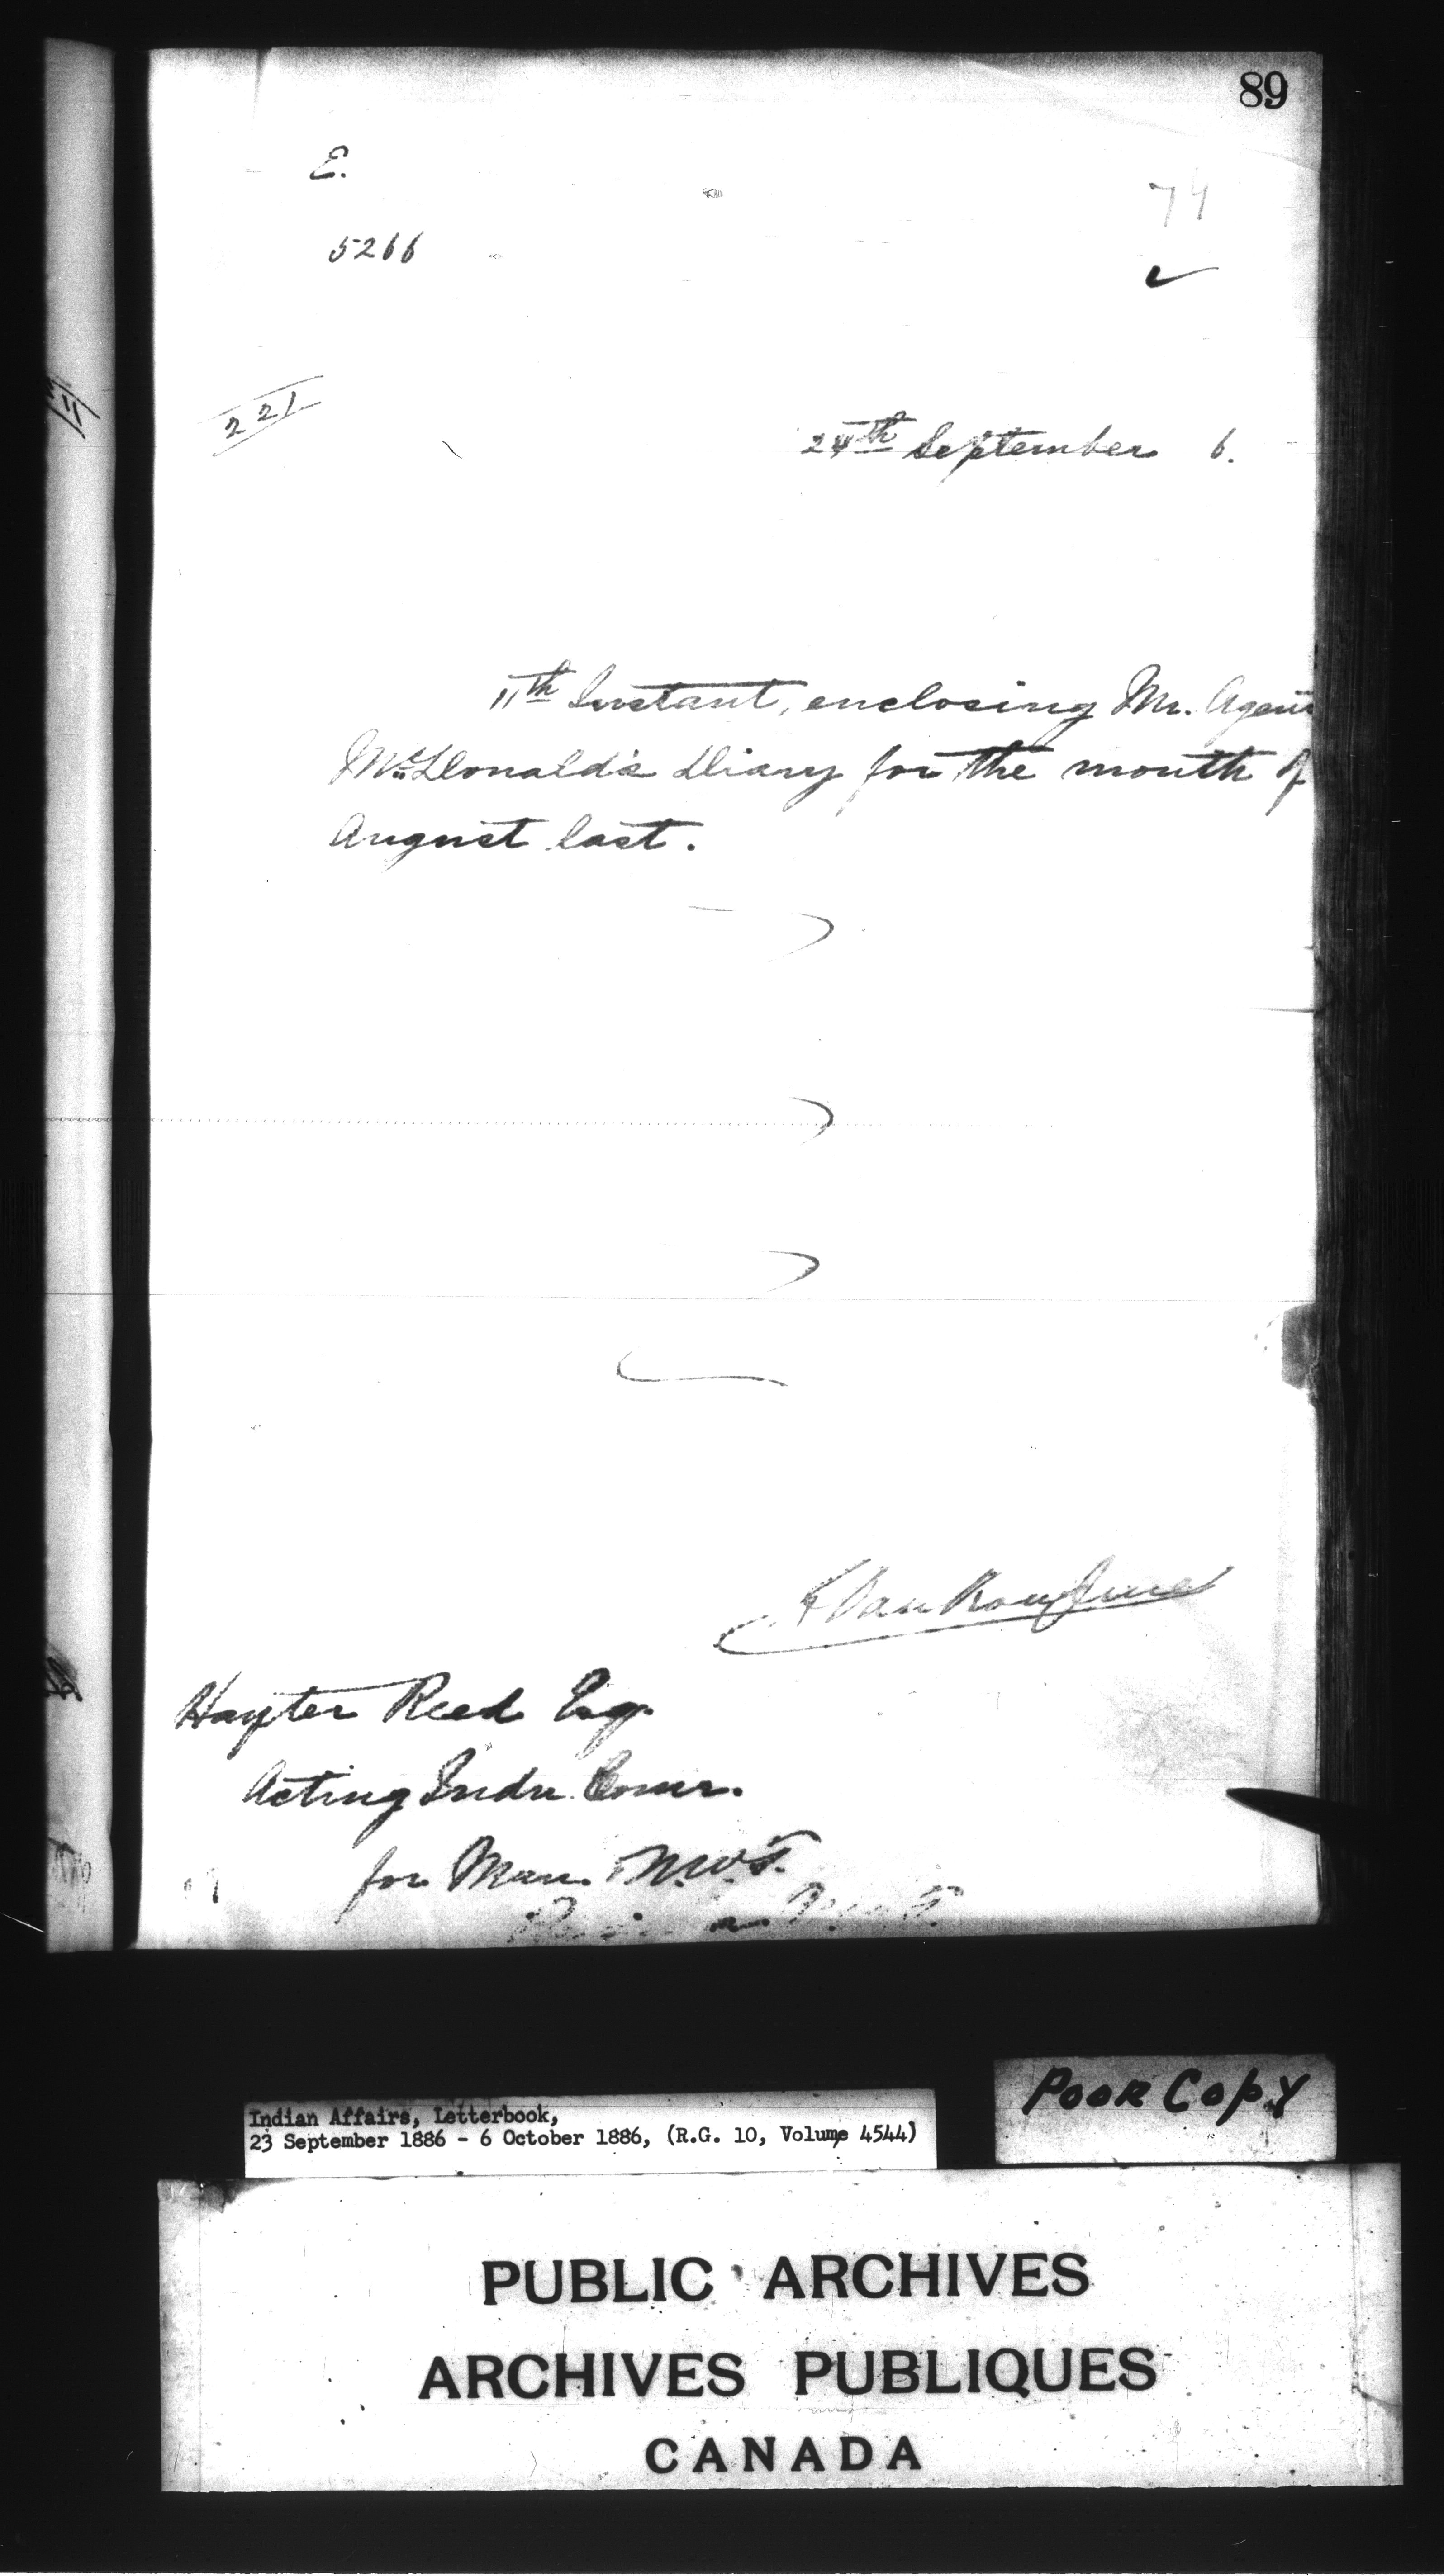 89
E.
74
5266
221
24th September 6.
11th Instant, enclosing Mr. Agent
McDonald's Diary for the month of
August last.
L Vankoughnet
Hayter Reed Esq.
Acting Indn. Comr.
for Man. N.W.T.
Indian Affairs, Letterbook,
23 September 1886 - 6 October 1886, (R.G. 10, Volume 4544)
Poor Copy
PUBLIC ARCHIVES
ARCHIVES PUBLIQUES
CANADA